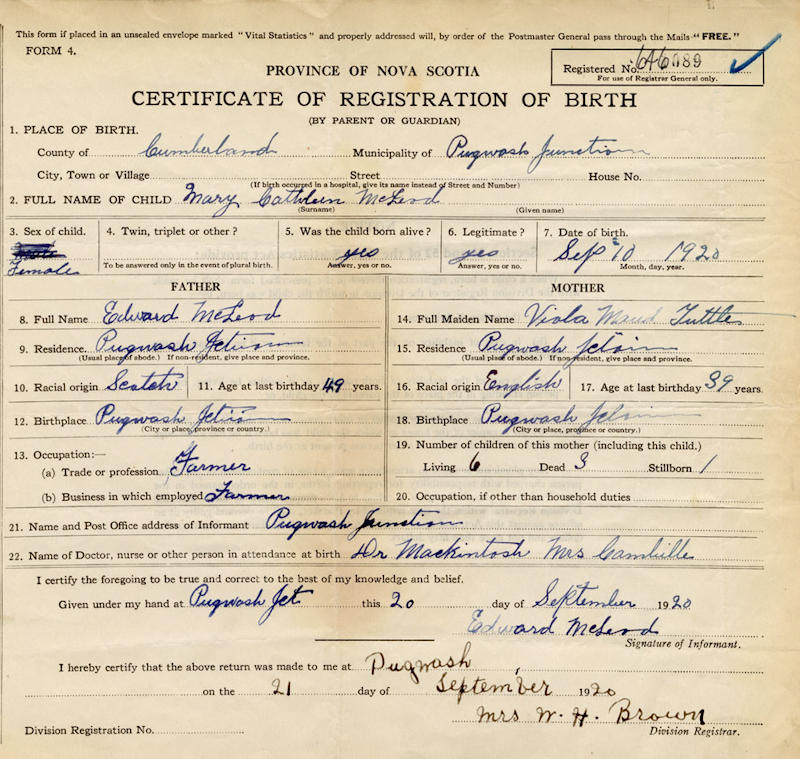 This form if placed in an unsealed envelope marked "Vital Statistics" and properly addressed will, by order of the Postmaster General pass through the Mails "FREE."
FORM 4.
Registered No. 646089
For use of Registrar General only.
PROVINCE OF NOVA SCOTIA
CERTIFICATE OF REGISTRATION OF BIRTH
(BY PARENT OR GUARDIAN)
1. PLACE OF BIRTH.
County of Cumberland Municipality of Pugwash Junction
City, Town or Village Street House No.
(If birth occurred in a hospital, give its name instead of Street and Number)
2. FULL NAME OF CHILD Mary Cathlein McLeod
(Surname) (Given name)
3. Sex of child. 4. Twin, triplet or other? 5. Was the child born alive? 6. Legitimate? 7. Date of birth.
Female yes yes Sep 10 1920
To be answered only in the event of plural birth. Answer, yes or no. Answer, yes or no. Month, day, year.
FATHER
8. Full Name Edward McLeod
9. Residence. Pugwash Jction
(Usual place of abode.) If non resident, give place and province.
10. Racial origin Scotch 11. Age at last birthday 49 years.
12. Birthplace Pugwash Jction
(City or place, province or country.)
13. Occupation:—
(a) Trade or profession Farmer
(b) Business in which employed Farmer
MOTHER
14. Full Maiden Name Viola Maud Tuttle
15. Residence Pugwash Jction
(Usual place of abode.) If non resident, give place and province.
16. Racial origin English 17. Age at last birthday 39 years.
18. Birthplace Pugwash Jction
(City or place, province or country.)
19. Number of children of this mother (including this child.)
Living 6 Dead 3 Stillborn 1
20. Occupation, if other than household duties
21. Name and Post Office address of Informant Pugwash Junction
22. Name of Doctor, nurse or other person in attendance at birth Dr Mackintosh Mrs
I certify the foregoing to be true and correct to the best of my knowledge and belief.
Given under my hand at Pugwash Jct this 20 day of September 1920
Edward McLeod
Signature of Informant.
I hereby certify that the above return was made to me at Pugwash
on the 21 day of September, 1920
Mrs W. H. Brown
Division Registration No. Division Registrar.